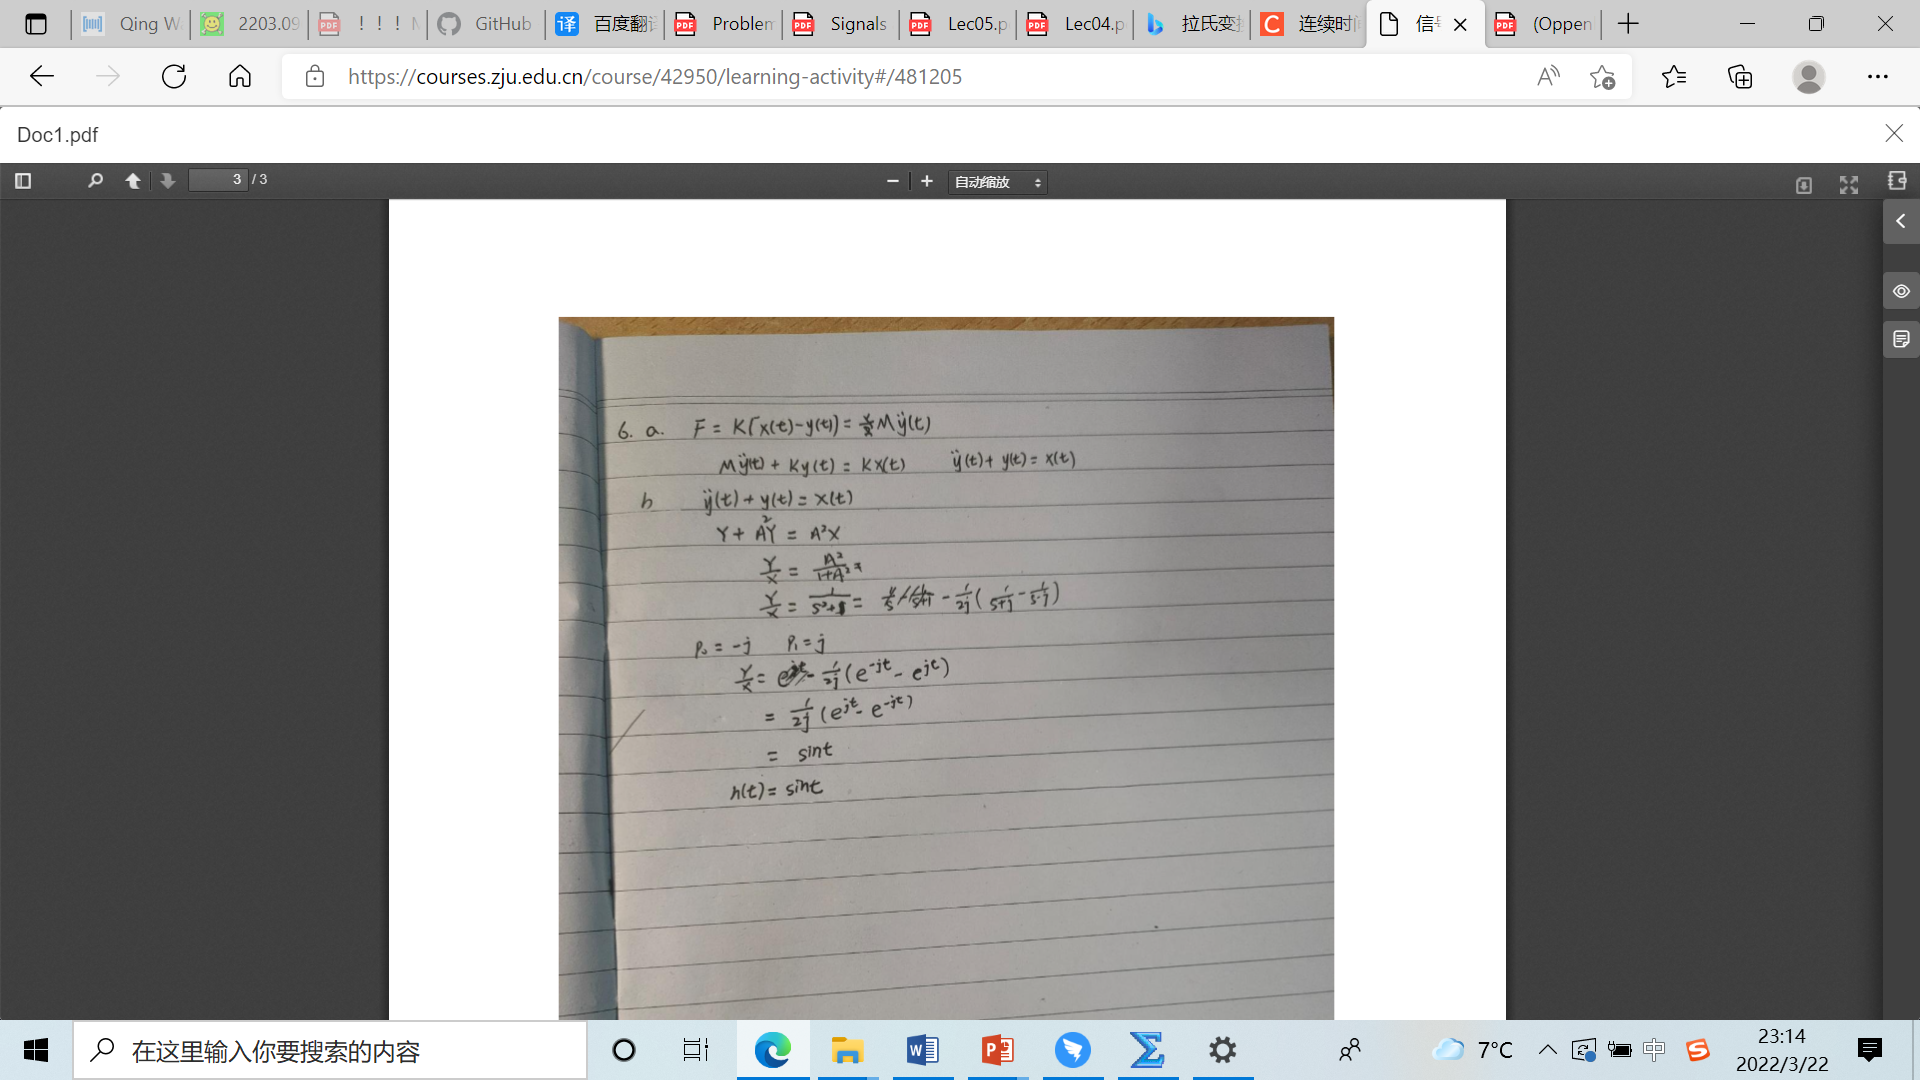 Qing W
2203.09
！！！ M
GitHub
百度翻译
Problem
Signals
Lec05.p
Lec04.p
拉氏变换
连续时间
信号
(Oppen
https://courses.zju.edu.cn/course/42950/learning-activity#/481205
Doc1.pdf
3 / 3
自动缩放
6. a. F = K[x(t)-y(t)] = Mÿ(t)
Mÿ(t) + Ky(t) = Kx(t) ÿ(t) + y(t) = x(t)
b ÿ(t) + y(t) = x(t)
Y + A²Y = A²X
Y/X = A²/(1+A²)
Y/X = 1/(s²+1) = - 1/2j ( 1/(s+j) - 1/(s-j) )
P₀ = -j P₁ = j
Y/X = - 1/2j (e^-jt - e^jt)
= 1/2j (e^jt - e^-jt)
= sint
h(t) = sint
在这里输入你要搜索的内容
7°C
中
23:14
2022/3/22